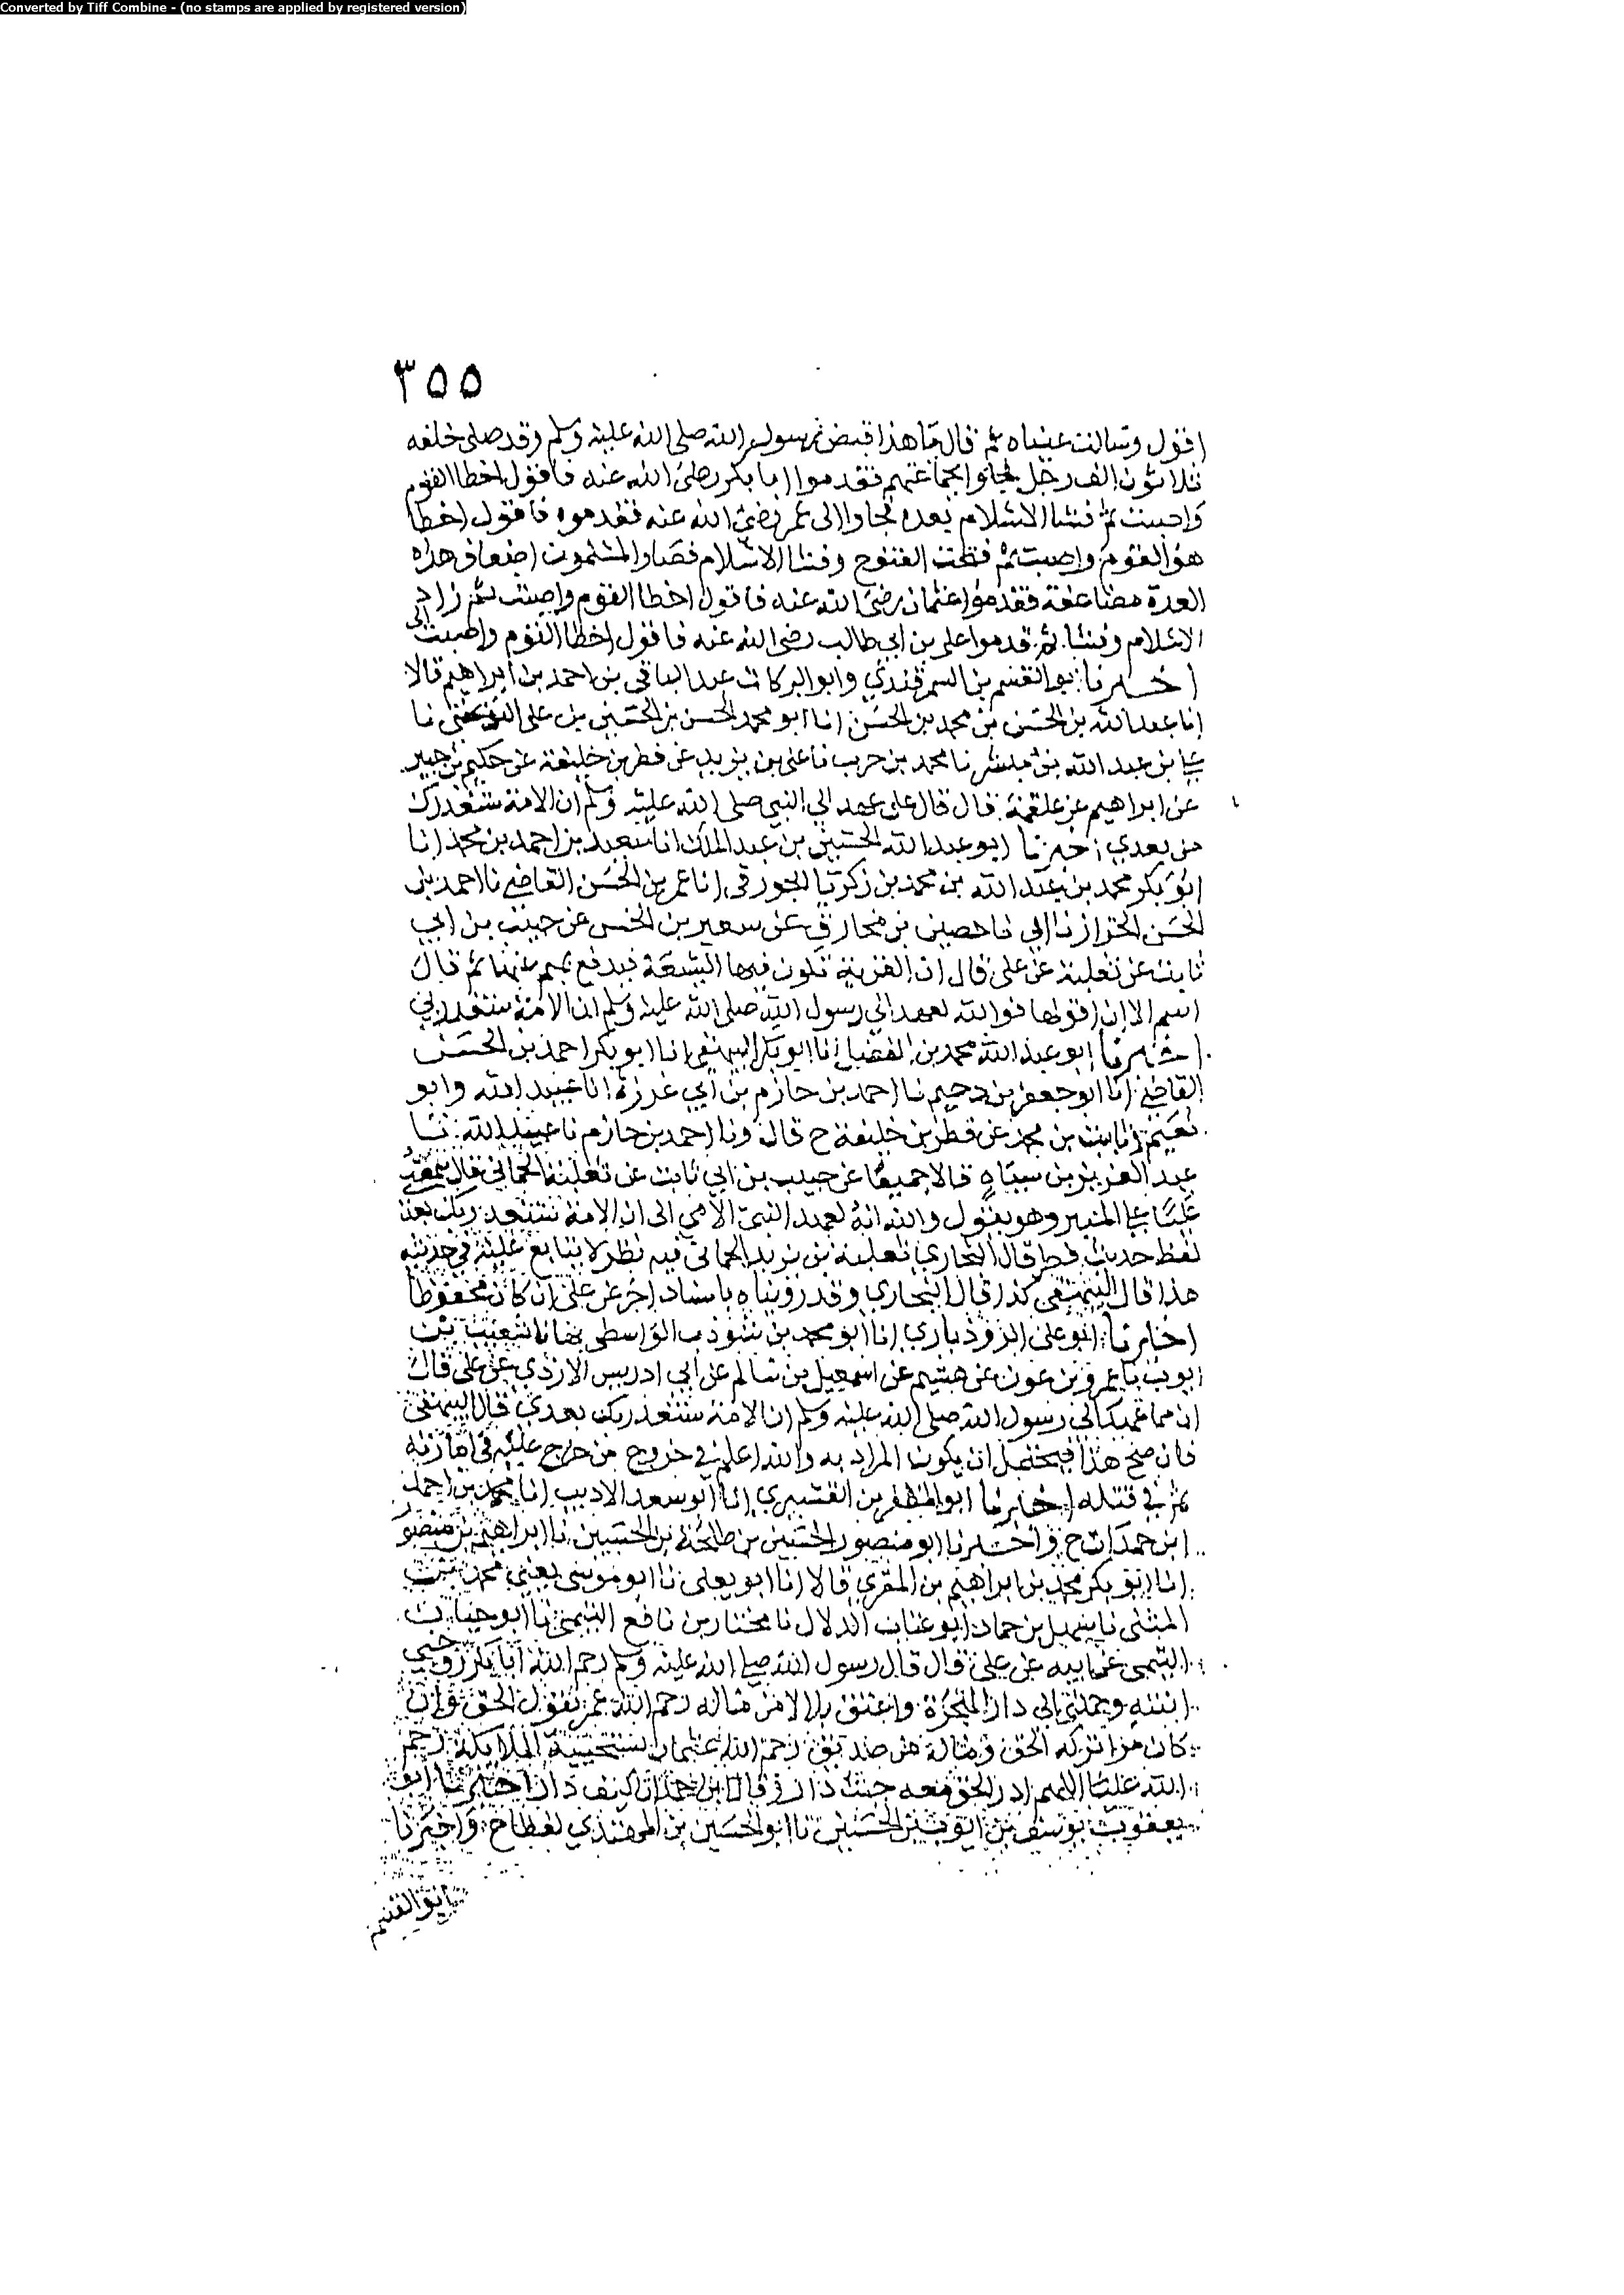 Converted by Tiff Combine - (no stamps are applied by registered version)
٣٥٥
اقول وسالت عيناه ثم قال ما هذا قبض رسول الله صلى الله عليه وسلم وقد صلى خلفه
ثلاثون الف رجل فجاوا بجماعتهم فقدموا ابا بكر رضى الله عنه فاقول اخطا القوم
واصبت ثم فشا الاسلام بعده فجاوا الى عمر رضى الله عنه فقدموه فاقول اخطا
هو القوم واصبت ثم فتحت الفتوح وفشا الاسلام فصار المسلمون اضعاف هذه
العدة مضاعفة فقدموا عثمان رضى الله عنه فاقول اخطا القوم واصبت ثم زاد
الاسلام وفشا ثم قدموا على بن ابي طالب رضى الله عنه فاقول اخطا القوم واصبت الى
اخبرنا ابو القسم بن السمرقندي وابو البركات عبد الباقي بن احمد بن ابراهيم قالا
انا عبد الله بن الحسن بن محمد بن الحسن انا ابو محمد الحسن بن الحسين بن على نا
على بن عبد الله بن مبشر نا محمد بن حرب نا على بن يزيد عن فطر بن خليفة عن حكيم بن جبير
عن ابراهيم عن علقمة قال قال على عهد الي النبي صلى الله عليه وسلم ان الامة ستغدر بك
من بعدي اخبرنا ابو عبد الله الحسين بن عبد الملك انا سعيد بن احمد بن محمد انا
ابو بكر محمد بن عبد الله بن محمد بن زكريا الجوزقي انا عمر بن الحسن القاضي نا احمد بن
الحسن الخزاز نا ابي نا حصين بن مخارق عن سعير بن الخمس عن حبيب بن ابي
ثابت عن ثعلبة عن على قال ان القرية تكون فيها الشيعة فيدفع بهم عنها ثم قال
الا ان اقولها فوالله لعهد الي رسول الله صلى الله عليه وسلم ان الامة ستغدر بي
اخبرنا ابو عبد الله محمد بن الفضل انا ابو بكر البيهقي انا ابو بكر احمد بن الحسن
القاضي انا ابو جعفر بن دحيم نا احمد بن حازم بن ابي غرزة انا عبيد الله وابو
نعيم بن محمد عن فطر بن خليفة ح قال ونا احمد بن حازم نا عبيد الله نا
عبد العزيز بن سياه قالا جميعا عن حبيب بن ابي ثابت عن ثعلبة الحماني قال سمعت
عليا على المنبر وهو يقول والله انه لعهد النبي الامي الى ان الامة ستغدر بك بعدي
لفظ حديث فطر قال البخاري ثعلبة بن يزيد الحماني فيه نظر لا يتابع عليه في حديثه
هذا قال البيهقي كذا قال البخاري وقد رويناه باسناد اخر عن على ان كان محفوظا
اخبرنا ابو على الروذباري انا ابو محمد بن شوذب الواسطي بها نا شعيب بن
ايوب نا عمرو بن عون عن هشيم عن اسمعيل بن سالم عن ابي ادريس الازدي عن على قال
ان مما عهد الى رسول الله صلى الله عليه وسلم ان الامة ستغدر بك بعدي قال البيهقي
فان صح هذا فيحتمل ان يكون المراد به والله اعلم في خروج من خرج عليه في امارته
ثم في قتله اخبرنا ابو المظفر بن القشيري انا ابو سعد الاديب انا محمد بن احمد
ابن حمدان ح واخبرنا ابو منصور الحسين بن طلحة بن الحسين نا ابراهيم بن منصور
انا ابو بكر محمد بن ابراهيم بن المقري قالا انا ابو يعلى نا ابو موسى يعني محمد بن
المثنى نا سهيل بن حماد ابو عتاب الدلال نا مختار بن نافع التيمي نا ابو حيان
التيمي عن ابيه عن على قال قال رسول الله صلى الله عليه وسلم رحم الله ابا بكر زوجني
ابنته وحملني الى دار الهجرة واعتق بلالا من ماله رحم الله عمر يقول الحق وان
كان مرا تركه الحق وماله من صديق رحم الله عثمان تستحييه الملايكة رحم
الله عليا اللهم ادر الحق معه حيث دار وقال ابن حمدان كيف دار اخبرنا ابو
يعقوب يوسف بن ايوب بن الحسين نا ابو الحسين بن المهتدي لفظا ح واخبرنا
ابو القسم